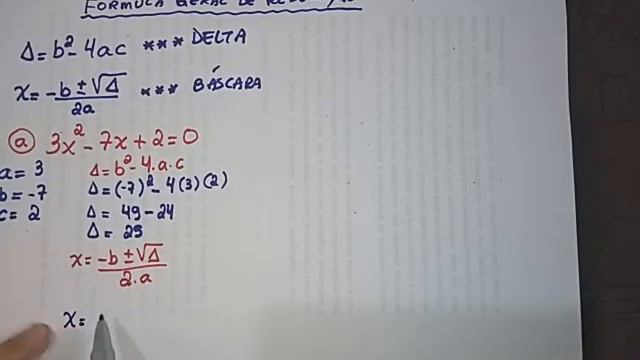 FÓRMULA GERAL DE
Δ = b² - 4ac *** DELTA
x = -b ± √Δ / 2a *** BÁSCARA
a) 3x² - 7x + 2 = 0
a = 3 Δ = b² - 4.a.c
b = -7 Δ = (-7)² - 4(3)(2)
c = 2 Δ = 49 - 24
Δ = 25
x = -b ± √Δ / 2.a
x =